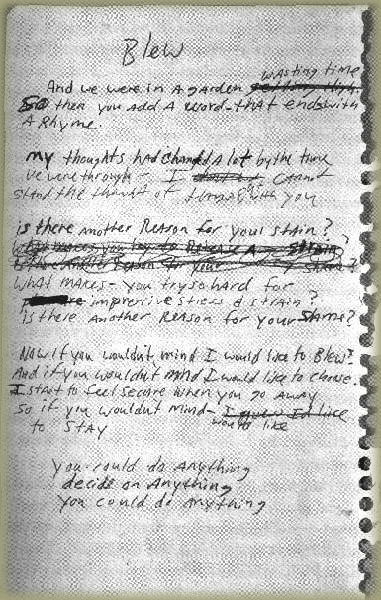 Blew
wasting time
And we were in A garden getting high.
So then you add A word-that ends with
A Rhyme.
my thoughts had changed A lot by the time
we were through - I don't Cannot
stand the thought of with you
is there another Reason for your strain?
what makes you try to Release A strain?
is there Another Reason for your stain?
what makes - you try so hard for
stress & strain?
is there Another Reason for your Shame?
Now if you wouldn't mind I would like to Blew?
And if you wouldn't mind I would like to choose.
I start to feel secure when you go away
So if you wouldn't mind - I guess I'd like
would like
to stay
you could do Anything
decide on Anything
you could do Anything